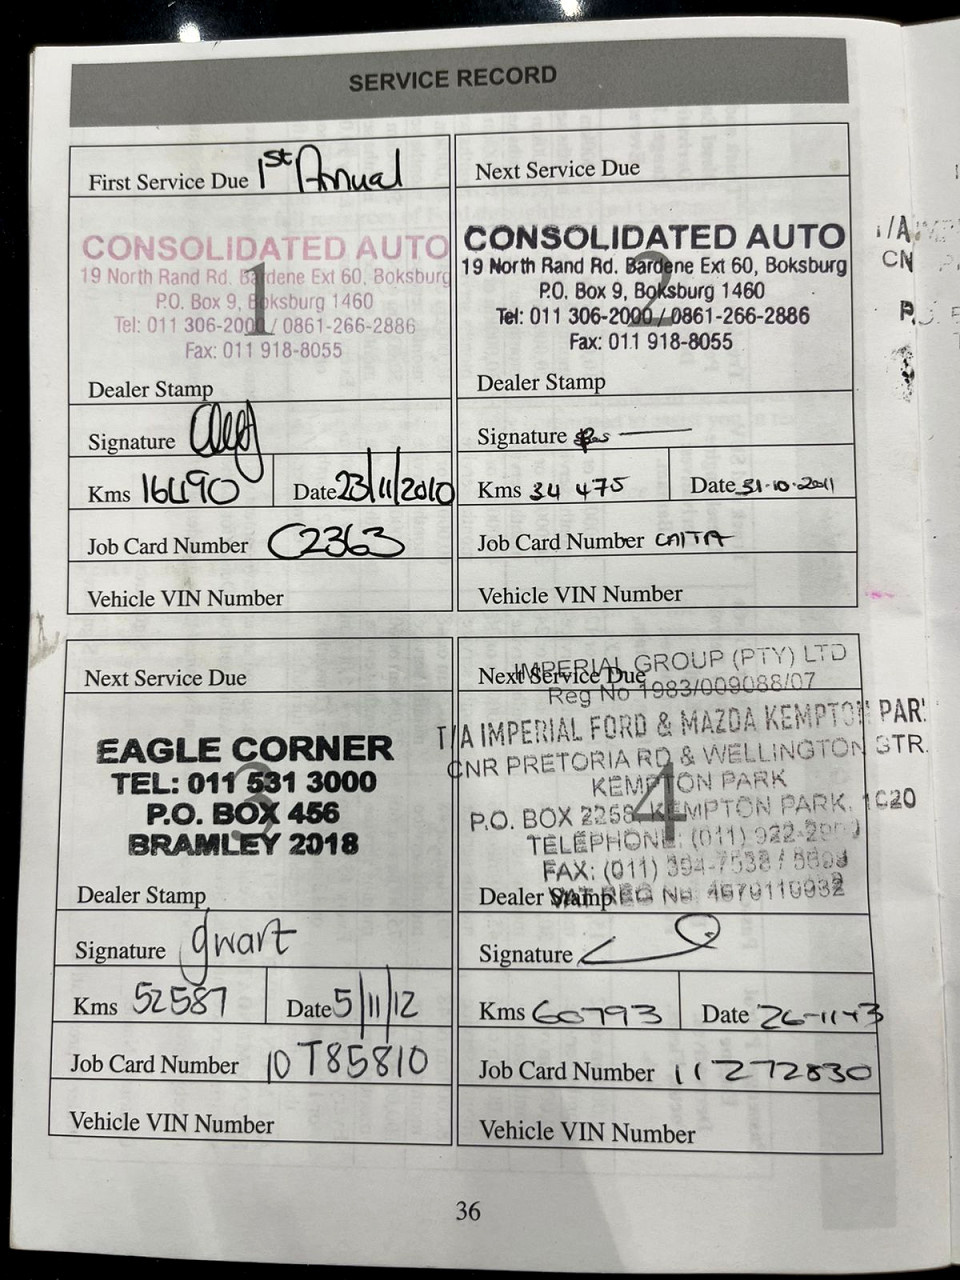 SERVICE RECORD
First Service Due 1st Annual
CONSOLIDATED AUTO
19 North Rand Rd. Bardene Ext 60, Boksburg
P.O. Box 9, Boksburg 1460
Tel: 011 306-2000 / 0861-266-2886
Fax: 011 918-8055
1
Dealer Stamp
Signature
Kms 16490 Date 23/11/2010
Job Card Number C2363
Vehicle VIN Number
Next Service Due
CONSOLIDATED AUTO
19 North Rand Rd. Bardene Ext 60, Boksburg
P.O. Box 9, Boksburg 1460
Tel: 011 306-2000 / 0861-266-2886
Fax: 011 918-8055
2
Dealer Stamp
Signature
Kms 34 475 Date 31-10-2011
Job Card Number
Vehicle VIN Number
Next Service Due
EAGLE CORNER
TEL: 011 531 3000
P.O. BOX 456
BRAMLEY 2018
3
Dealer Stamp
Signature gwart
Kms 52587 Date 5/11/12
Job Card Number 10T85810
Vehicle VIN Number
Next Service Due
IMPERIAL GROUP (PTY) LTD
Reg No 1983/009088/07
T/A IMPERIAL FORD & MAZDA KEMPTON PAR
CNR PRETORIA RD & WELLINGTON STR.
KEMPTON PARK
P.O. BOX 2258 KEMPTON PARK, 1620
TELEPHONE: (011) 922-
FAX: (011) 394-7538 /
VAT REG No. 4670110932
4
Dealer Stamp
Signature
Kms 60793 Date 26-11-13
Job Card Number 11272830
Vehicle VIN Number
36